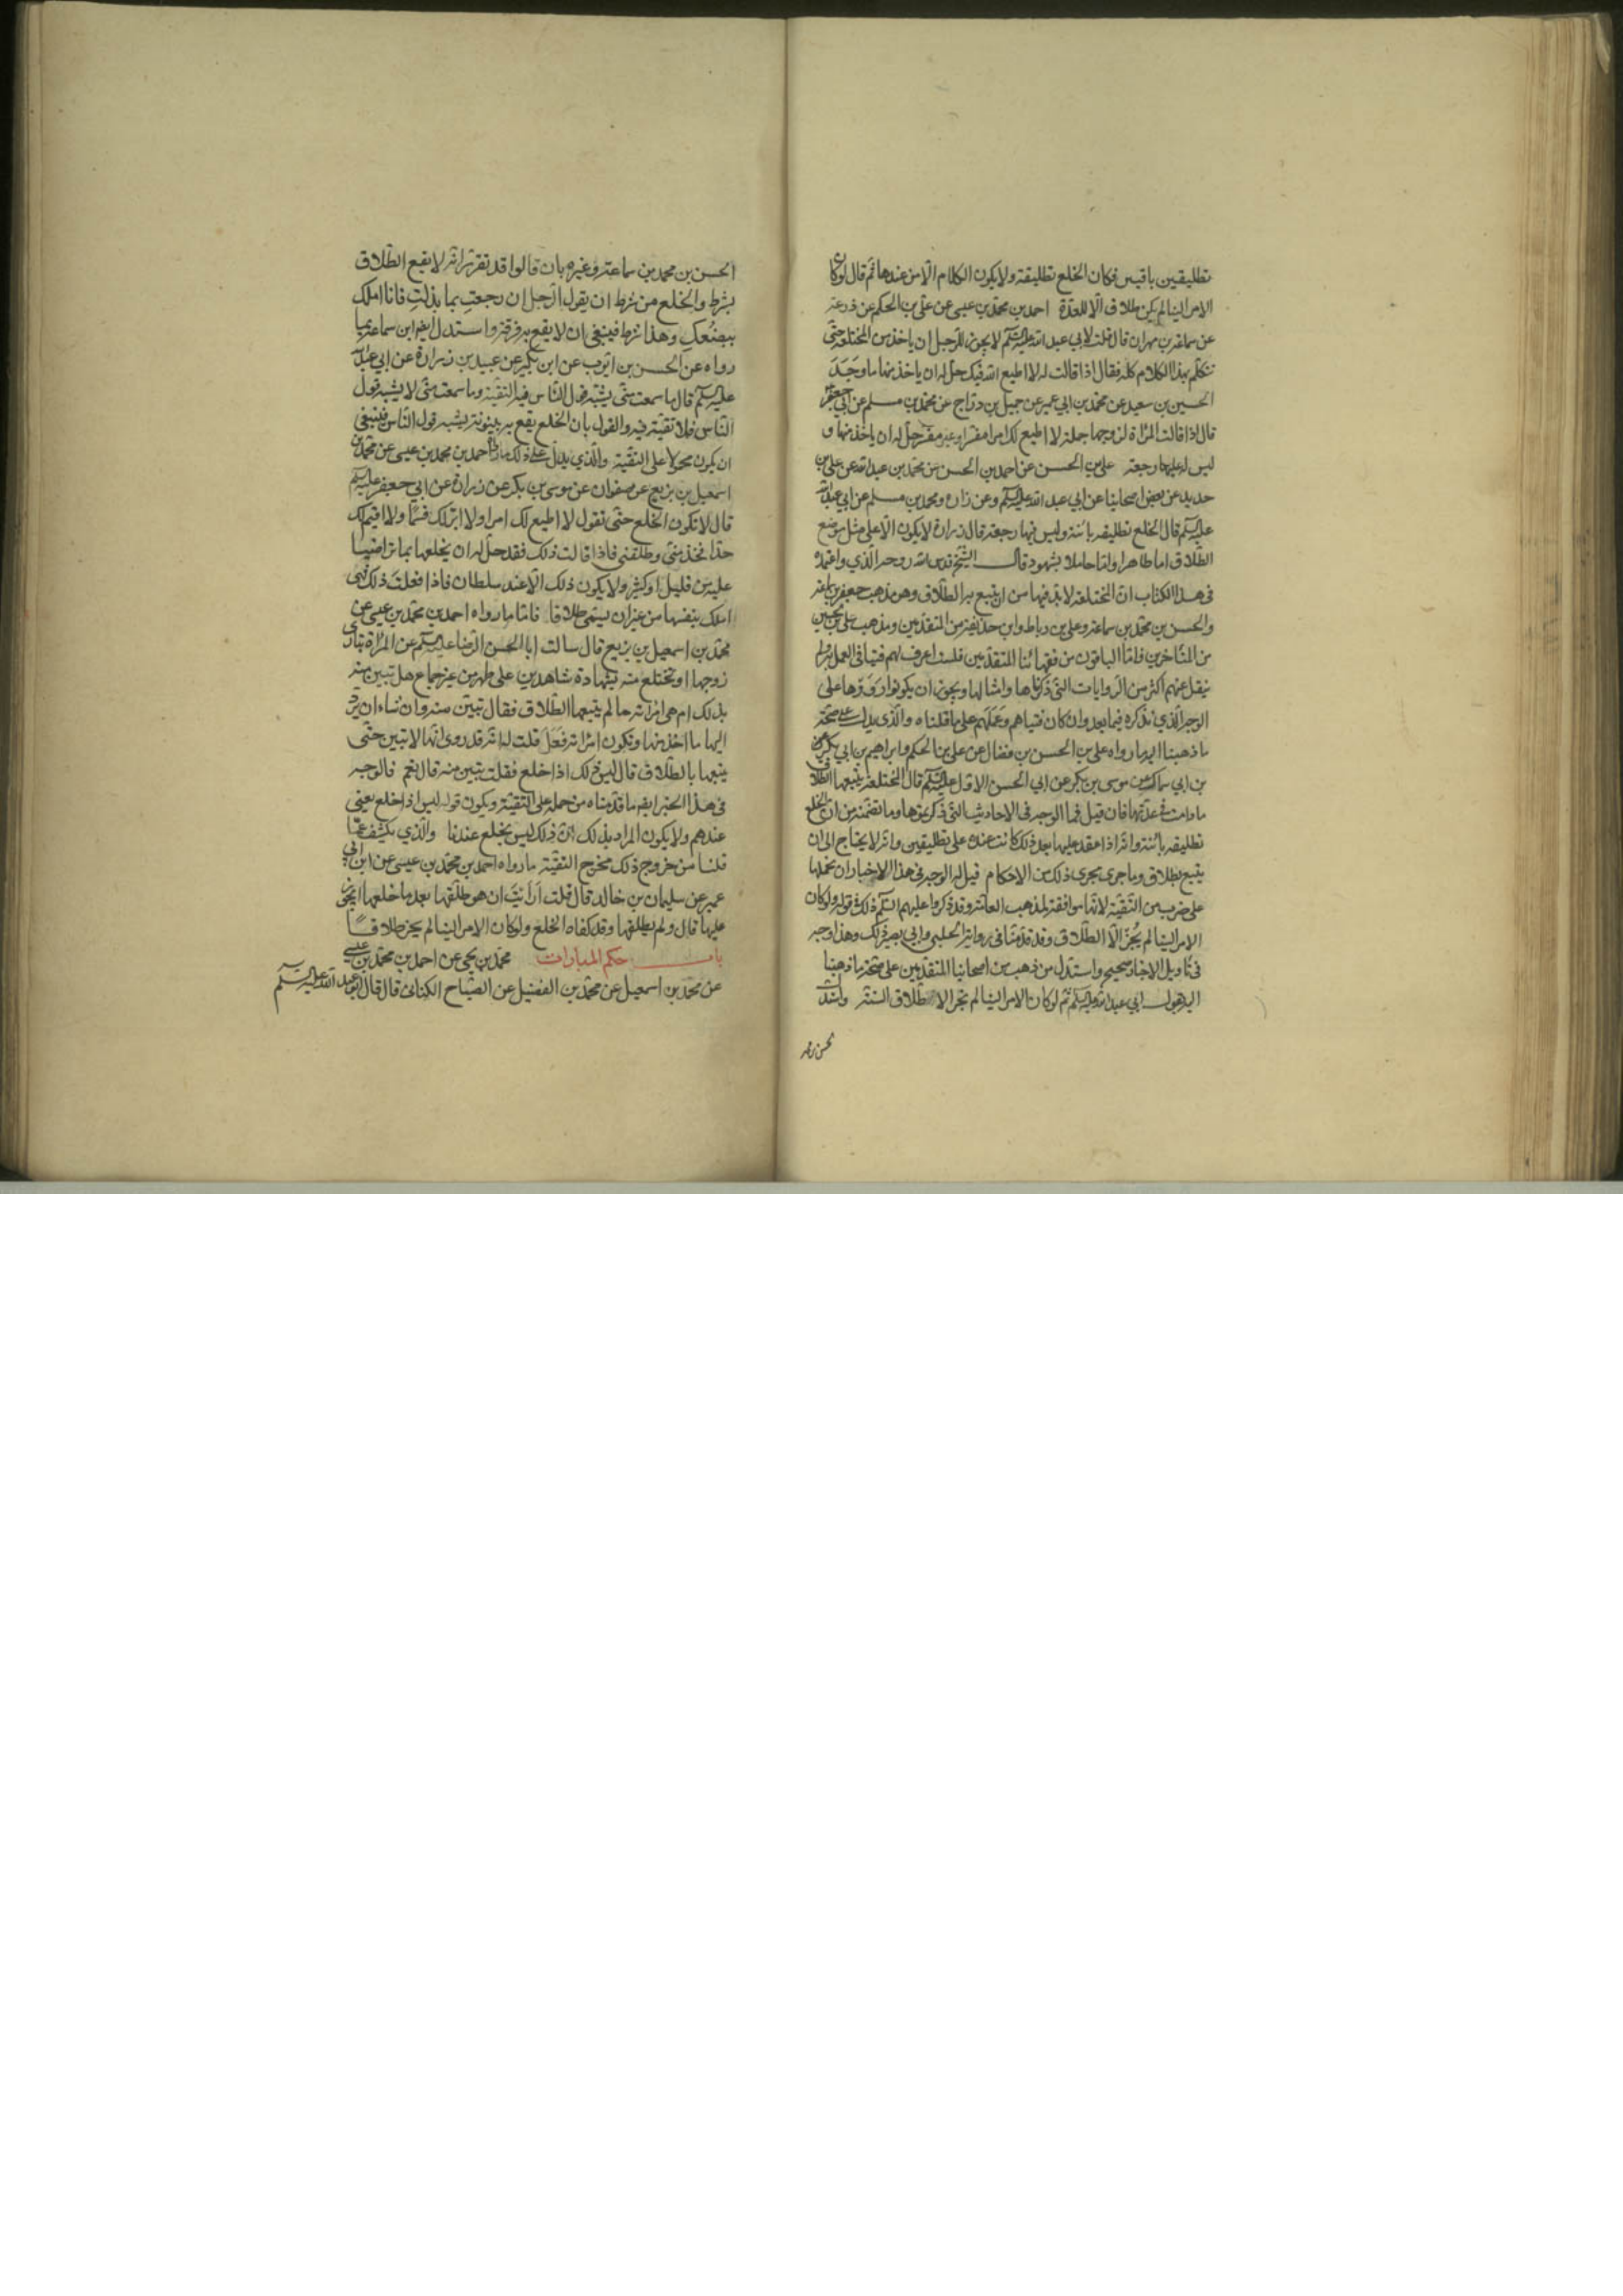 تطليقتين باقيتين فكان الخلع تطليقة ولا يكون الكلام الا من عندها ثم قال لو كان
الامر الينا لم يكن طلاق الا للعدة احمد بن محمد بن عيسى عن على بن الحكم عن زرعة
عن سماعة بن مهران قال قلت لابي عبد الله عليه السلم لا يجوز للرجل ان ياخذ من المختلعة حتى
تتكلم بهذا الكلام كله فقال اذا قالت له لا اطيع الله فيك حل له ان ياخذ منها ما وَجَدَ
الحسين بن سعيد عن محمد بن ابي عمير عن جميل بن دراج عن محمد بن مسلم عن ابي جعفر
قال اذا قالت المراة لزوجها جملة لا اطيع لك امرا مفسرا وغير مفسر حل له ان ياخذ منها و
ليس له عليها رجعة على بن الحسن عن احمد بن الحسن عن محمد بن عبد الله عن على بن
حديد عن بعض اصحابنا عن ابي عبد الله عليه السلم وعن زرارة ومحمد بن مسلم عن ابي عبد الله
عليه السلم قال الخلع تطليقه بائنة وليس فيها رجعة قال زرارة لا يكون الا على مثل موضع
الطلاق اما طاهرا واما حاملا بشهود قال الشيخ قدس الله روحه الذي واعتمده
في هذا الكتاب ان المختلعة لا بد فيها من ان يتبع بالطلاق وهو مذهب جعفر بن سماعة
والحسن بن محمد بن سماعة وعلى بن رباط وابن حذيفة من المتقدمين ومذهب على بن الحسين
من المتاخرين فاما الباقون من فقهائنا المتقدمين فلست اعرف لهم فتيا في العمل به ولم
ينقل عنهم اكثر من الروايات التي ذكرناها وامثالها ويجوز ان يكونوا رَوَوْها على
الوجه الذي نذكره فيما بعد وان كان فتياهم وعملهم على ما قلناه والذي يدل على صحة
ما ذهبنا اليه ما رواه على بن الحسن بن فضال عن على بن الحكم وابراهيم بن ابي بكر
بن ابي سماك عن موسى بن بكر عن ابي الحسن الاول عليه السلم قال المختلعة يتبعها الطلاق
ما دامت في عدتها فان قيل فما الوجه في الاحاديث التي ذكرتموها وما تضمنه من ان الخلع
تطليقه بائنة وانه اذا عقد عليها بعد ذلك كانت عنده على تطليقتين وانه لا يحتاج الى ان
يتبع بطلاق وما جرى مجرى ذلك من الاحكام قيل له الوجه في هذا الاخبار ان نحملها
على ضرب من التقية لانها موافقة لمذهب العامة وقد ذكروا عليهم السلم ذلك في قوله ولو كان
الامر الينا لم يُجز الا الطلاق وقد قدمنا في رواية الحلبي وابي بصير ذلك وهذا وجه
في تاويل الاخبار صحيح واستدل من ذهب من اصحابنا المتقدمين على صحة ما ذهبنا
اليه بقول ابي عبد الله عليه السلم ثم لو كان الامر الينا لم نجز الا طلاق السنة واستدل
الحسن بن محمد بن سماعة وغيره بان قالوا قد تقرر انه لا يقع الطلاق
بشرط والخلع من شرطه ان يقول الرجل ان رجعتِ بما بذلتِ فانا املك
ببضعكِ وهذا شرط فينبغي ان لا يقع به فرقة واستدل ايضا ابن سماعة بما
رواه عن الحسن بن ايوب عن ابن بكير عن عبيد بن زرارة عن ابي عبد الله
عليه السلم قال ما سمعت منى يشبه قول الناس فيه التقية وما سمعت منى لا يشبه قول
الناس فلا تقية فيه والقول بان الخلع يقع به بينونة يشبه قول الناس فينبغي
ان يكون محمولا على التقية والذي يدل على ذلك ما رواه احمد بن محمد بن عيسى عن محمد بن
اسمعيل بن بزيع عن صفوان عن موسى بن بكر عن زرارة عن ابي جعفر عليه السلم
قال لا تكون الخلع حتى تقول لا اطيع لك امرا ولا ابر لك قسما ولا اقيم لك
حدا فخذ منى وطلقنى فاذا قالت ذلك فقد حل له ان يخلعها بما تراضيا
عليه من قليل او كثير ولا يكون ذلك الا عند سلطان فاذا فعلت ذلك فهى
املك بنفسها من غير ان يسمى طلاقا فاما ما رواه احمد بن محمد بن عيسى عن
محمد بن اسمعيل بن بزيع قال سالت ابا الحسن الرضا عليه السلم عن المراة تبارى
زوجها او تختلع منه بشهادة شاهدين على طهر من غير جماع هل تبين منه
بذلك ام هى امراته ما لم يتبعها الطلاق فقال تبين منه وان شاء ان يرد
اليها ما اخذ منها وتكون امراته فَعَلَ قلت له انه قد روى انها لا تبين حتى
يتبعها بالطلاق قال ليس ذلك اذا خلع فقلت تبين منه قال نعم فالوجه
في هذا الخبر ايضا ما قدمناه من حمله على التقية ويكون قوله ليس اذا خلع يعنى
عندهم ولا يكون المراد بذلك ان ذلك ليس بخلع عندنا والذي يكشف عما
قلنا من خروج ذلك مخرج التقية ما رواه احمد بن محمد بن عيسى عن ابن ابي
عمير عن سليمان بن خالد قال قلت ارايت ان هو طلقها بعد ما خلعها ايجوز
عليها قال ولم يطلقها وقد كفاه الخلع ولو كان الامر الينا لم يجز طلاقا
باب حكم المبارات محمد بن يحيى عن احمد بن محمد بن عيسى
عن محمد بن اسمعيل عن محمد بن الفضيل عن الصباح الكنانى قال قال ابو عبد الله عليه السلم